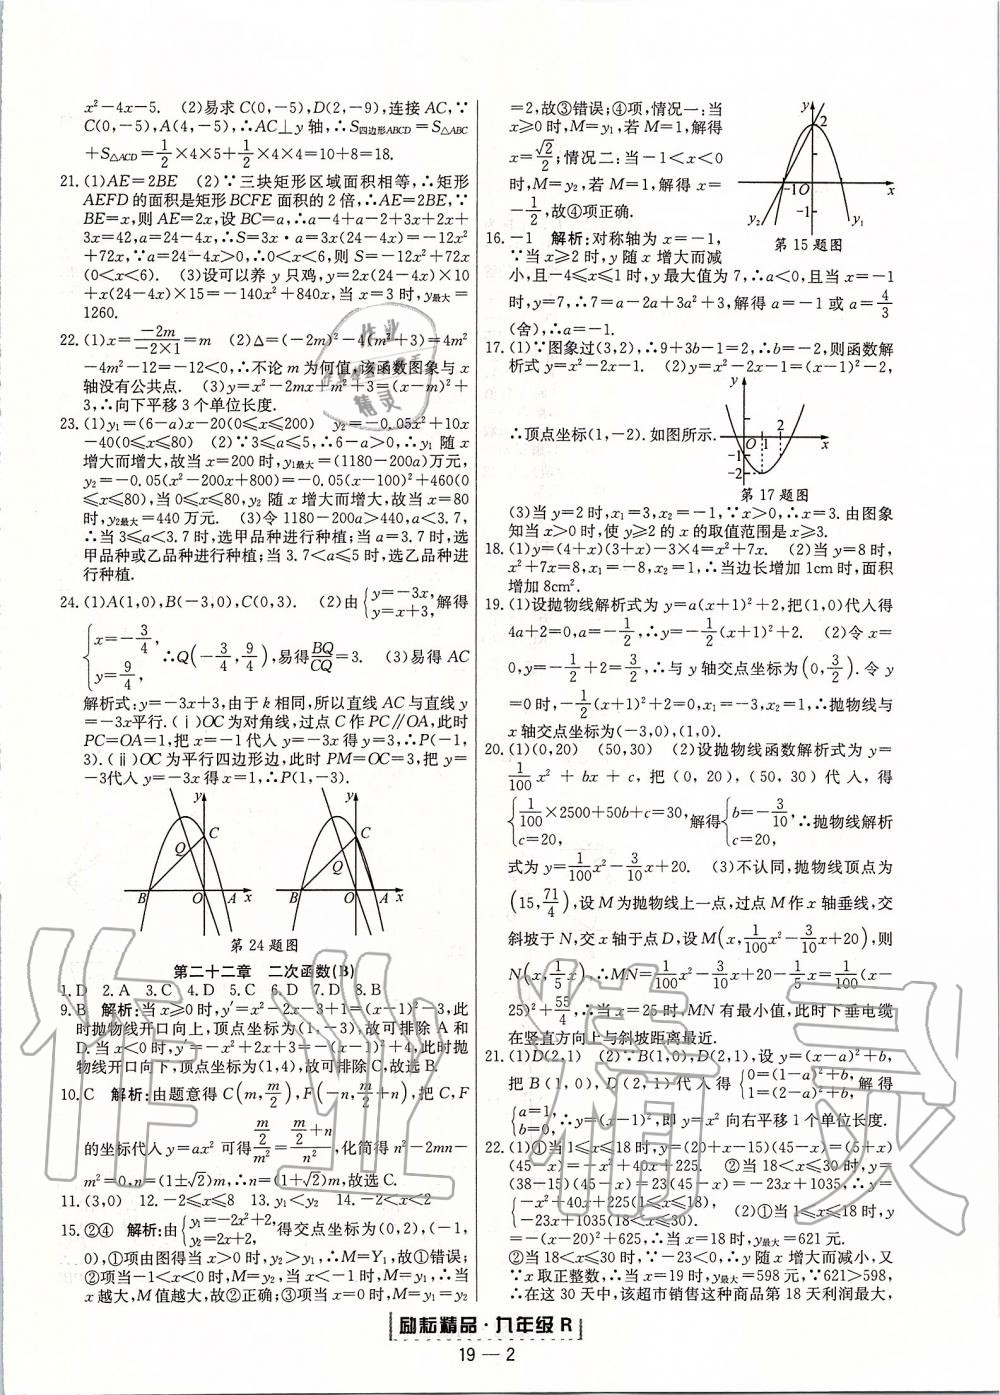 x²-4x-5. (2)易求C(0,-5),D(2,-9),连接AC,∵
C(0,-5),A(4,-5),∴AC⊥y轴,∴S四边形ABCD=S△ABC
+S△ACD=1/2×4×5+1/2×4×4=10+8=18.
21.(1)AE=2BE (2)∵三块矩形区域面积相等,∴矩形
AEFD的面积是矩形BCFE面积的2倍,∴AE=2BE,∵
BE=x,则AE=2x,设BC=a,∴a-4+a-2+3x+2x+
3x=42,a=24-4x,∴S=3x·a=3x(24-4x)=-12x²
+72x,∵a=24-4x>0,∴0<x<6,则S=-12x²+72x
(0<x<6). (3)设可以养y只鸡,y=2x(24-4x)×10
+x(24-4x)×15=-140x²+840x,当x=3时,y最大=
1260.
22.(1)x=-2m/-2×1=m (2)Δ=(-2m)²-4(m²+3)=4m²
-4m²-12=-12<0,∴不论m为何值,该函数图象与x
轴没有公共点. (3)y=x²-2mx+m²+3=(x-m)²+
3,∴向下平移3个单位长度.
23.(1)y₁=(6-a)x-20(0≤x≤200) y₂=-0.05x²+10x
-40(0≤x≤80) (2)∵3≤a≤5,∴6-a>0,∴y₁随x
增大而增大,故当x=200时,y₁最大=(1180-200a)万元,
y₂=-0.05(x²-200x+800)=-0.05(x-100)²+460(0
≤x≤80),当0≤x≤80,y₂随x增大而增大,故当x=80
时,y₂最大=440万元. (3)令1180-200a>440,a<3.7,
∴当3≤a<3.7时,选甲品种进行种植;当a=3.7时,选
甲品种或乙品种进行种植;当3.7<a≤5时,选乙品种进
行种植.
24.(1)A(1,0),B(-3,0),C(0,3). (2)由{y=-3x, y=x+3,解得
{x=-3/4, y=9/4, ∴Q(-3/4,9/4),易得BQ/CQ=3. (3)易得AC
解析式:y=-3x+3,由于k相同,所以直线AC与直线y
=-3x平行.(ⅰ)OC为对角线,过点C作PC∥OA,此时
PC=OA=1,把x=-1代入y=-3x得y=3,∴P(-1,
3).(ⅱ)OC为平行四边形边,此时PM=OC=3,把y=
-3代入y=-3x得x=1,∴P(1,-3).
y C Q B O A x
y C Q B O A x
第24题图
第二十二章 二次函数(B)
1.D 2.A 3.C 4.D 5.C 6.D 7.D 8.B
9.B 解析:当x≥0时,y′=x²-2x-3+1=(x-1)²-3,此
时抛物线开口向上,顶点坐标为(1,-3),故可排除A和
D.当x<0时,y′=-x²+2x+3=-(x-1)²+4,此时抛
物线开口向下,顶点坐标为(1,4),故可排除C,故选B.
10.C 解析:由题意得C(m,m/2),F(-n,m/2+n),把C,F
的坐标代入y=ax²可得(m/2)/m²=(m/2+n)/n²,化简得n²-2mn-
m²=0,n=(1±√2)m,∴n=(1+√2)m,故选C.
11.(3,0) 12.-2≤x≤8 13.y₁<y₂ 14.-2<x<2
15.②④ 解析:由{y₁=-2x²+2, y₂=2x+2, 得交点坐标为(0,2),(-1,
0),①项由图得当x>0时,y₂>y₁,∴M=Y₁,故①错误;
②项当-1<x<0时,M=y₂,当x<-1时,M=y₁,∴当
x越大,M值越大,故②正确;③项当x=0时,M=y₁=y₂
=2,故③错误;④项,情况一:当
x≥0时,M=y₁,若M=1,解得
x=√2/2;情况二:当-1<x<0
时,M=y₂,若M=1,解得x=
-1/2,故④项正确.
y 2 -1 O x -1 y₂ y₁
第15题图
16.-1 解析:对称轴为x=-1,
∵当x≥2时,y随x增大而减
小,且-4≤x≤1时,y最大值为7,∴a<0,且当x=-1
时,y=7,∴7=a-2a+3a²+3,解得a=-1或a=4/3
(舍),∴a=-1.
17.(1)∵图象过(3,2),∴9+3b-1=2,∴b=-2,则函数解
析式y=x²-2x-1. (2)y=x²-2x-1=(x-1)²-2,
∴顶点坐标(1,-2).如图所示.
y O 1 2 x -1 -2
第17题图
(3)当y=2时,x₁=3,x₂=-1,∵x>0,∴x=3.由图象
知当x>0时,使y≥2的x的取值范围是x≥3.
18.(1)y=(4+x)(3+x)-3×4=x²+7x. (2)当y=8时,
x²+7x=8,x₁=-8,x₂=1,∴当边长增加1cm时,面积
增加8cm².
19.(1)设抛物线解析式为y=a(x+1)²+2,把(1,0)代入得
4a+2=0,a=-1/2,∴y=-1/2(x+1)²+2. (2)令x=
0,y=-1/2+2=3/2,∴与y轴交点坐标为(0,3/2).令y
=0时,-1/2(x+1)²+2=0,x₁=-3,x₂=1,∴抛物线与
x轴交点坐标为(-3,0),(1,0).
20.(1)(0,20) (50,30) (2)设抛物线函数解析式为y=
1/100x²+bx+c,把(0,20),(50,30)代入,得
{1/100×2500+50b+c=30, c=20, 解得{b=-3/10, c=20, ∴抛物线解析
式为y=1/100x²-3/10x+20. (3)不认同,抛物线顶点为
(15,71/4),设M为抛物线上一点,过点M作x轴垂线,交
斜坡于N,交x轴于点D,设M(x,1/100x²-3/10x+20),则
N(x,x/5),∴MN=1/100x²-3/10x+20-x/5=1/100(x-
25)²+55/4,∴当x=25时,MN有最小值,此时下垂电缆
在竖直方向上与斜坡距离最近.
21.(1)D(2,1) (2)∵B(1,0),D(2,1),设y=(x-a)²+b,
把B(1,0),D(2,1)代入得{0=(1-a)²+b, 1=(2-a)²+b, 解得
{a=1, b=0, ∴y=(x-1)²,即y=x²向右平移1个单位长度.
22.(1)①当1≤x≤18时,y=(20+x-15)(45-x)=(5+x)
(45-x)=-x²+40x+225. ②当18<x≤30时,y=
(38-15)(45-x)=23(45-x)=-23x+1035,∴y=
{-x²+40x+225(1≤x≤18), -23x+1035(18<x≤30). (2)①当1≤x≤18时,y
=-(x-20)²+625,∴当x=18时,y最大=621元.
②当18<x≤30时,∵-23<0,∴y随x增大而减小,又
∵x取正整数,∴当x=19时,y最大=598元,∵621>598,
∴在这30天中,该超市销售这种商品第18天利润最大,
励耘精品·九年级R
19—2
作业精灵